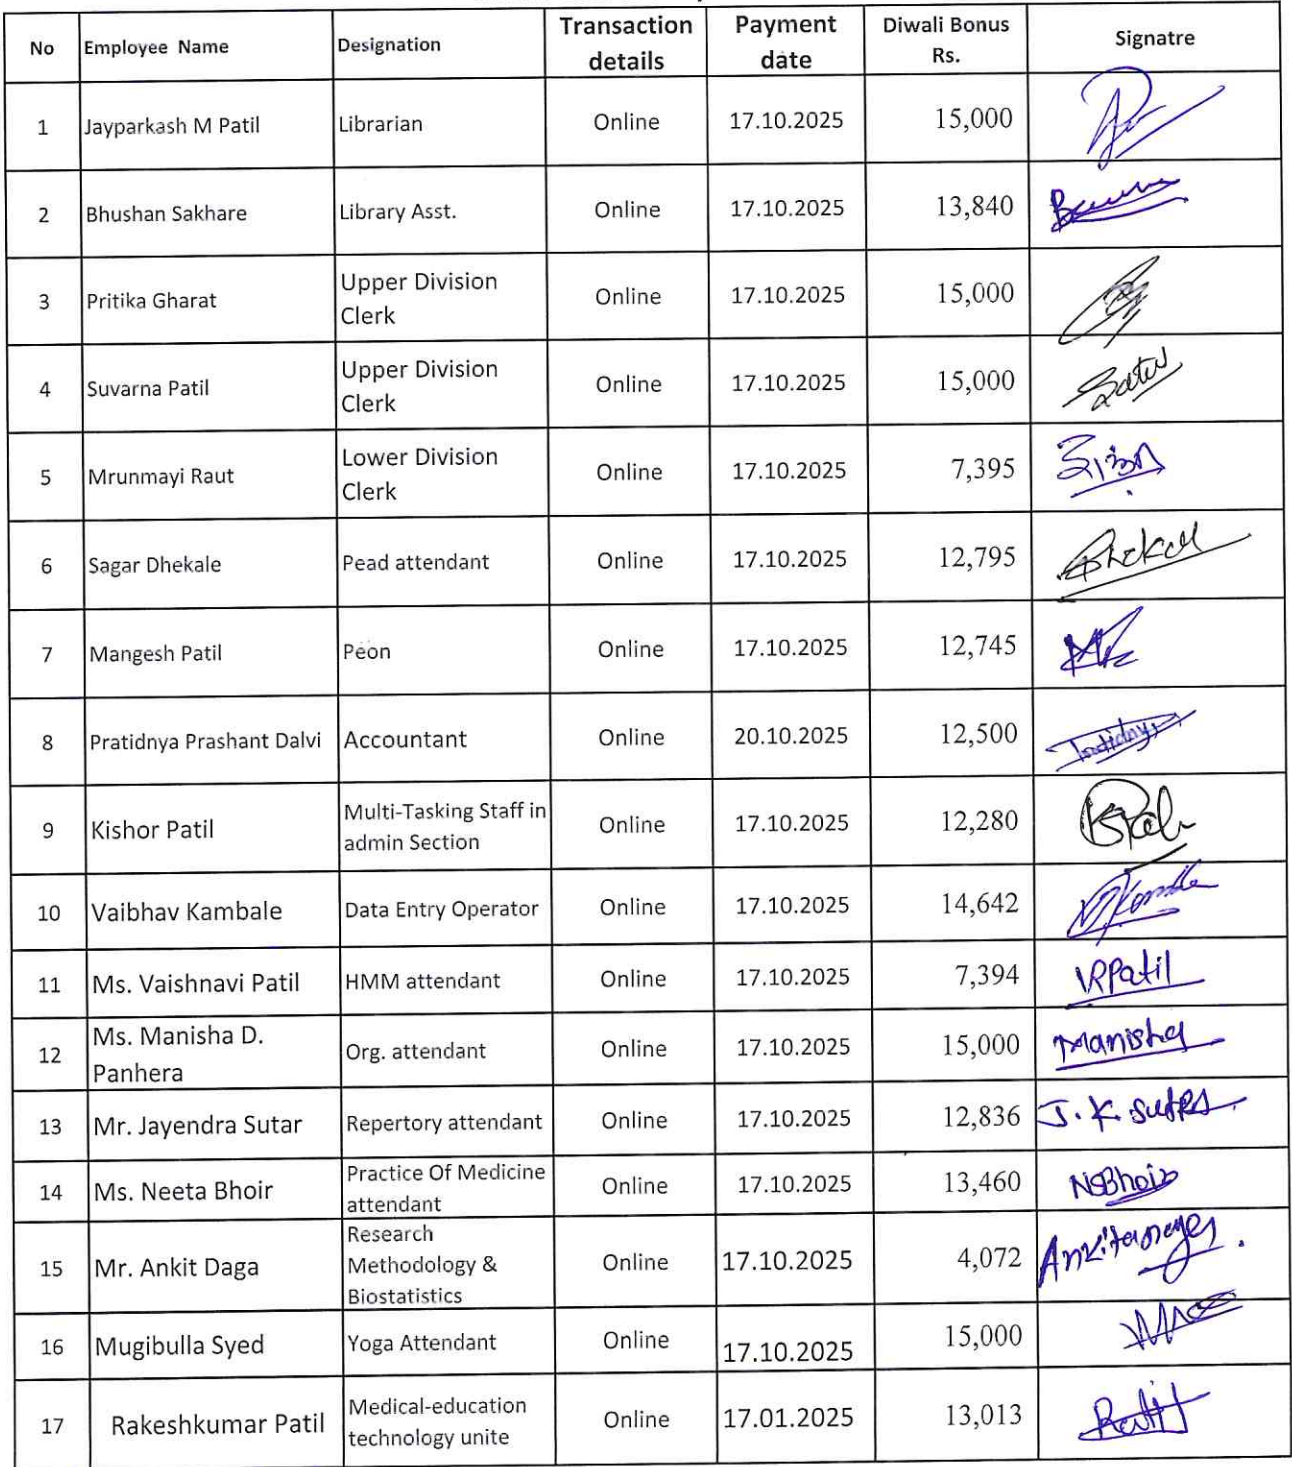 No Employee Name Designation Transaction details Payment date Diwali Bonus Rs. Signatre
1 Jayparkash M Patil Librarian Online 17.10.2025 15,000
2 Bhushan Sakhare Library Asst. Online 17.10.2025 13,840
3 Pritika Gharat Upper Division Clerk Online 17.10.2025 15,000
4 Suvarna Patil Upper Division Clerk Online 17.10.2025 15,000
5 Mrunmayi Raut Lower Division Clerk Online 17.10.2025 7,395
6 Sagar Dhekale Pead attendant Online 17.10.2025 12,795
7 Mangesh Patil Peon Online 17.10.2025 12,745
8 Pratidnya Prashant Dalvi Accountant Online 20.10.2025 12,500
9 Kishor Patil Multi-Tasking Staff in admin Section Online 17.10.2025 12,280
10 Vaibhav Kambale Data Entry Operator Online 17.10.2025 14,642
11 Ms. Vaishnavi Patil HMM attendant Online 17.10.2025 7,394 VRPatil
12 Ms. Manisha D. Panhera Org. attendant Online 17.10.2025 15,000 Manisha
13 Mr. Jayendra Sutar Repertory attendant Online 17.10.2025 12,836 J. K. Sutar
14 Ms. Neeta Bhoir Practice Of Medicine attendant Online 17.10.2025 13,460 NSBhoir
15 Mr. Ankit Daga Research Methodology & Biostatistics Online 17.10.2025 4,072
16 Mugibulla Syed Yoga Attendant Online 17.10.2025 15,000
17 Rakeshkumar Patil Medical-education technology unite Online 17.01.2025 13,013